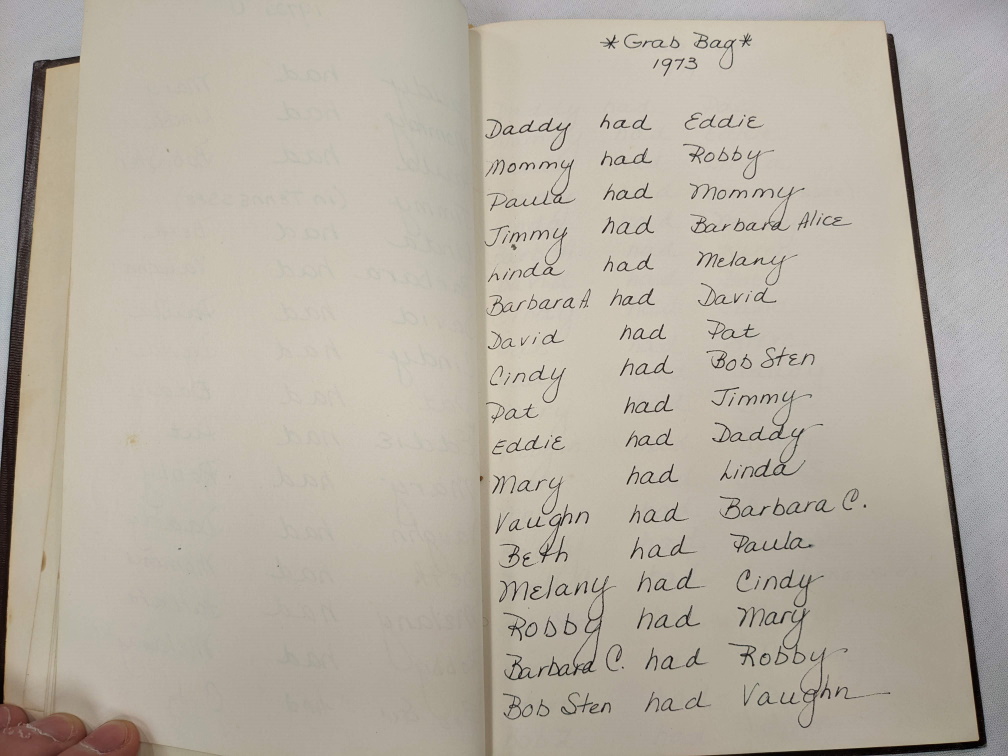 *Grab Bag*
1973
Daddy had Eddie
Mommy had Robby
Paula had Mommy
Jimmy had Barbara Alice
Linda had Melany
Barbara A had David
David had Pat
Cindy had Bob Sten
Pat had Jimmy
Eddie had Daddy
Mary had Linda
Vaughn had Barbara C.
Beth had Paula
Melany had Cindy
Robby had Mary
Barbara C. had Robby
Bob Sten had Vaughn